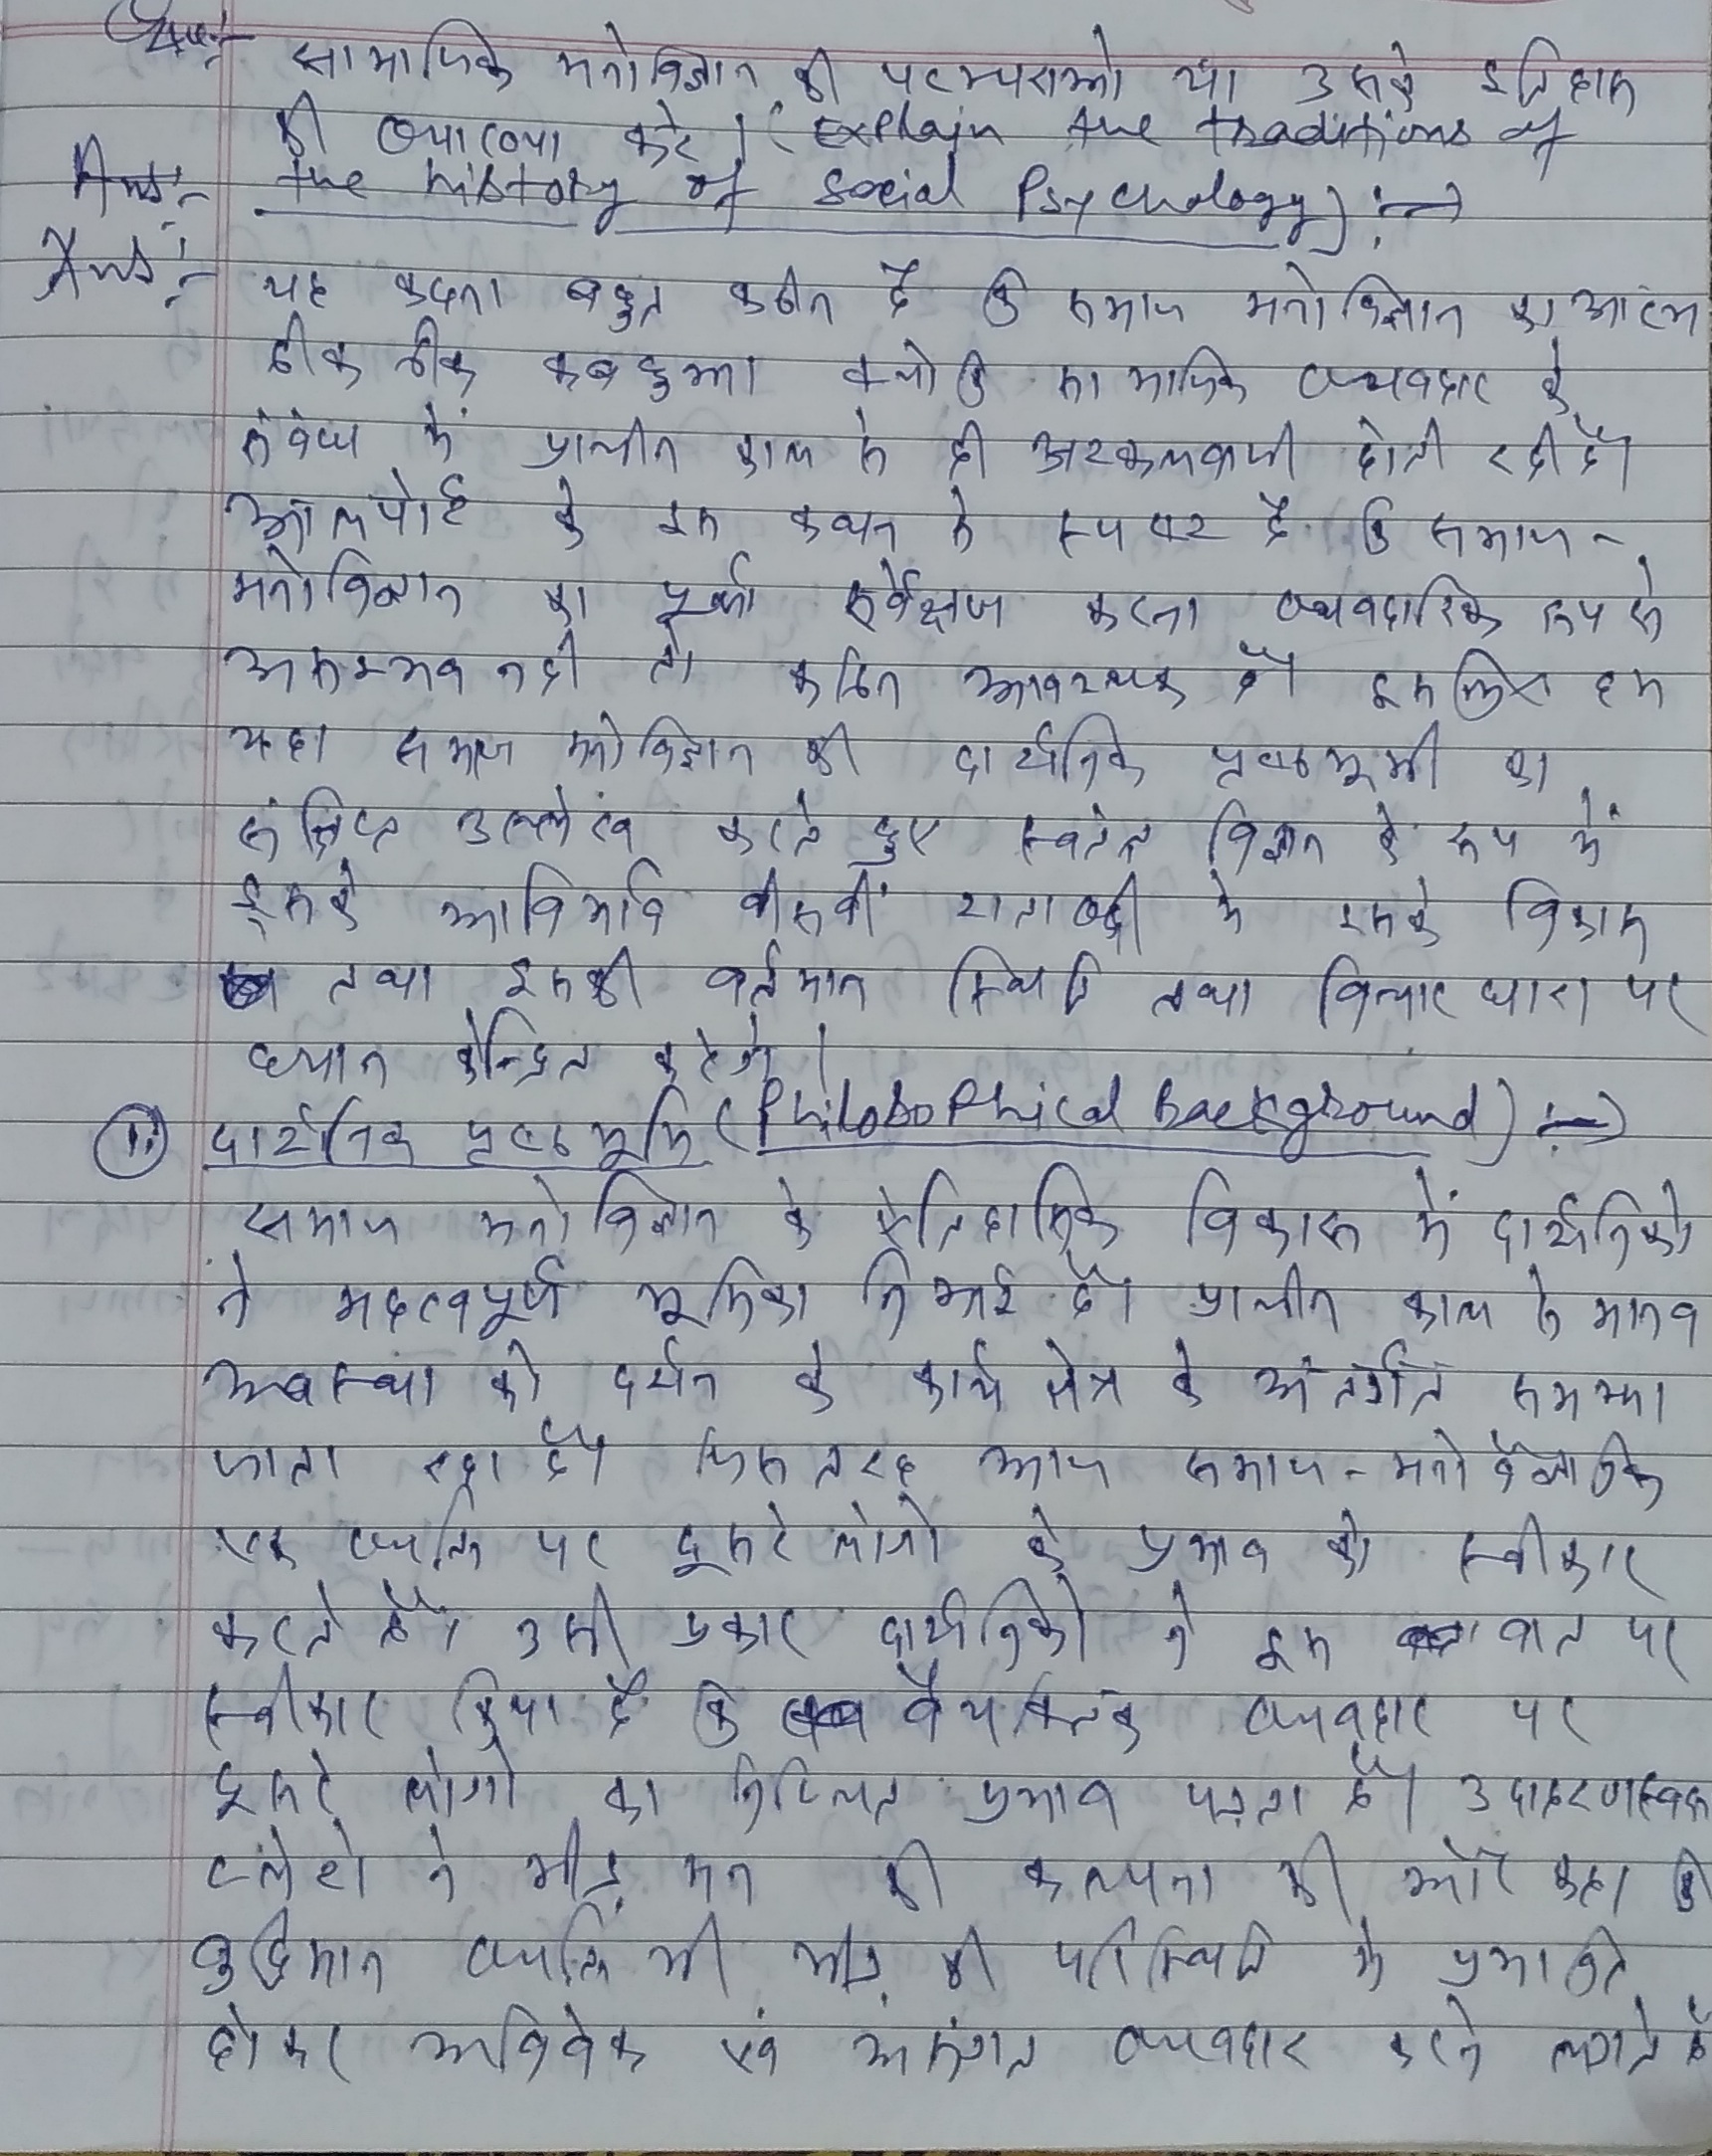 Que:-
सामाजिक मनोविज्ञान की परम्पराओ या उसके इतिहास
की व्याख्या करे। (Explain the traditions of
Ans:- the history of Social Psychology) :→
Ans:- यह कहना बहुत कठीन है कि समाज मनोविज्ञान का आरंभ
ठीक ठीक कब हुआ क्योकि सामाजिक व्यवहार के
संबंध में प्राचीन काल से ही अटकलबाजी होती रही है।
आलपोर्ट के इस कथन से स्पष्ट है कि समाज-
मनोविज्ञान का पूर्ण सर्वेक्षण करना व्यवहारिक रूप से
असम्भव नही तो कठिन आवश्यक है। इसलिए हम
यहा समाज मनोविज्ञान की दार्शनिक पृष्ठभूमी का
संक्षिप्त उल्लेख करते हुए स्वतंत्र विज्ञान के रूप में
इसके आविर्भाव बीसवीं शताब्दी मे इसके विकास
तथा इसकी वर्तमान स्थिति तथा विचार धारा पर
ध्यान केन्द्रित करेगे।
दार्शनिक पृष्ठभूमि (Philosophical Background) :→
समाज मनोविज्ञान के ऐतिहासिक विकास में दार्शनिको
ने महत्वपूर्ण भूमिका निभाई है। प्राचीन काल से मानव
अवस्था को दर्शन के कार्य क्षेत्र के अंतर्गत समझा
जाता रहा है। जिस तरह आज समाज-मनोवैज्ञानिक
एक व्यक्ति पर दूसरे लोगो के प्रभाव को स्वीकार
करते है। उसी प्रकार दार्शनिको ने इस बात पर
स्वीकार किया है कि वैयक्तिक व्यवहार पर
दूसरे लोगो का निश्चित प्रभाव पड़ता है। उदाहरणस्वरूप
प्लेटो ने भीड़ मन की कल्पना की और कहा कि
बुद्धिमान व्यक्ति भी भीड़ की परिस्थिति मे प्रभावित
होकर अविवेक एवं असंगत व्यवहार करने लगते है